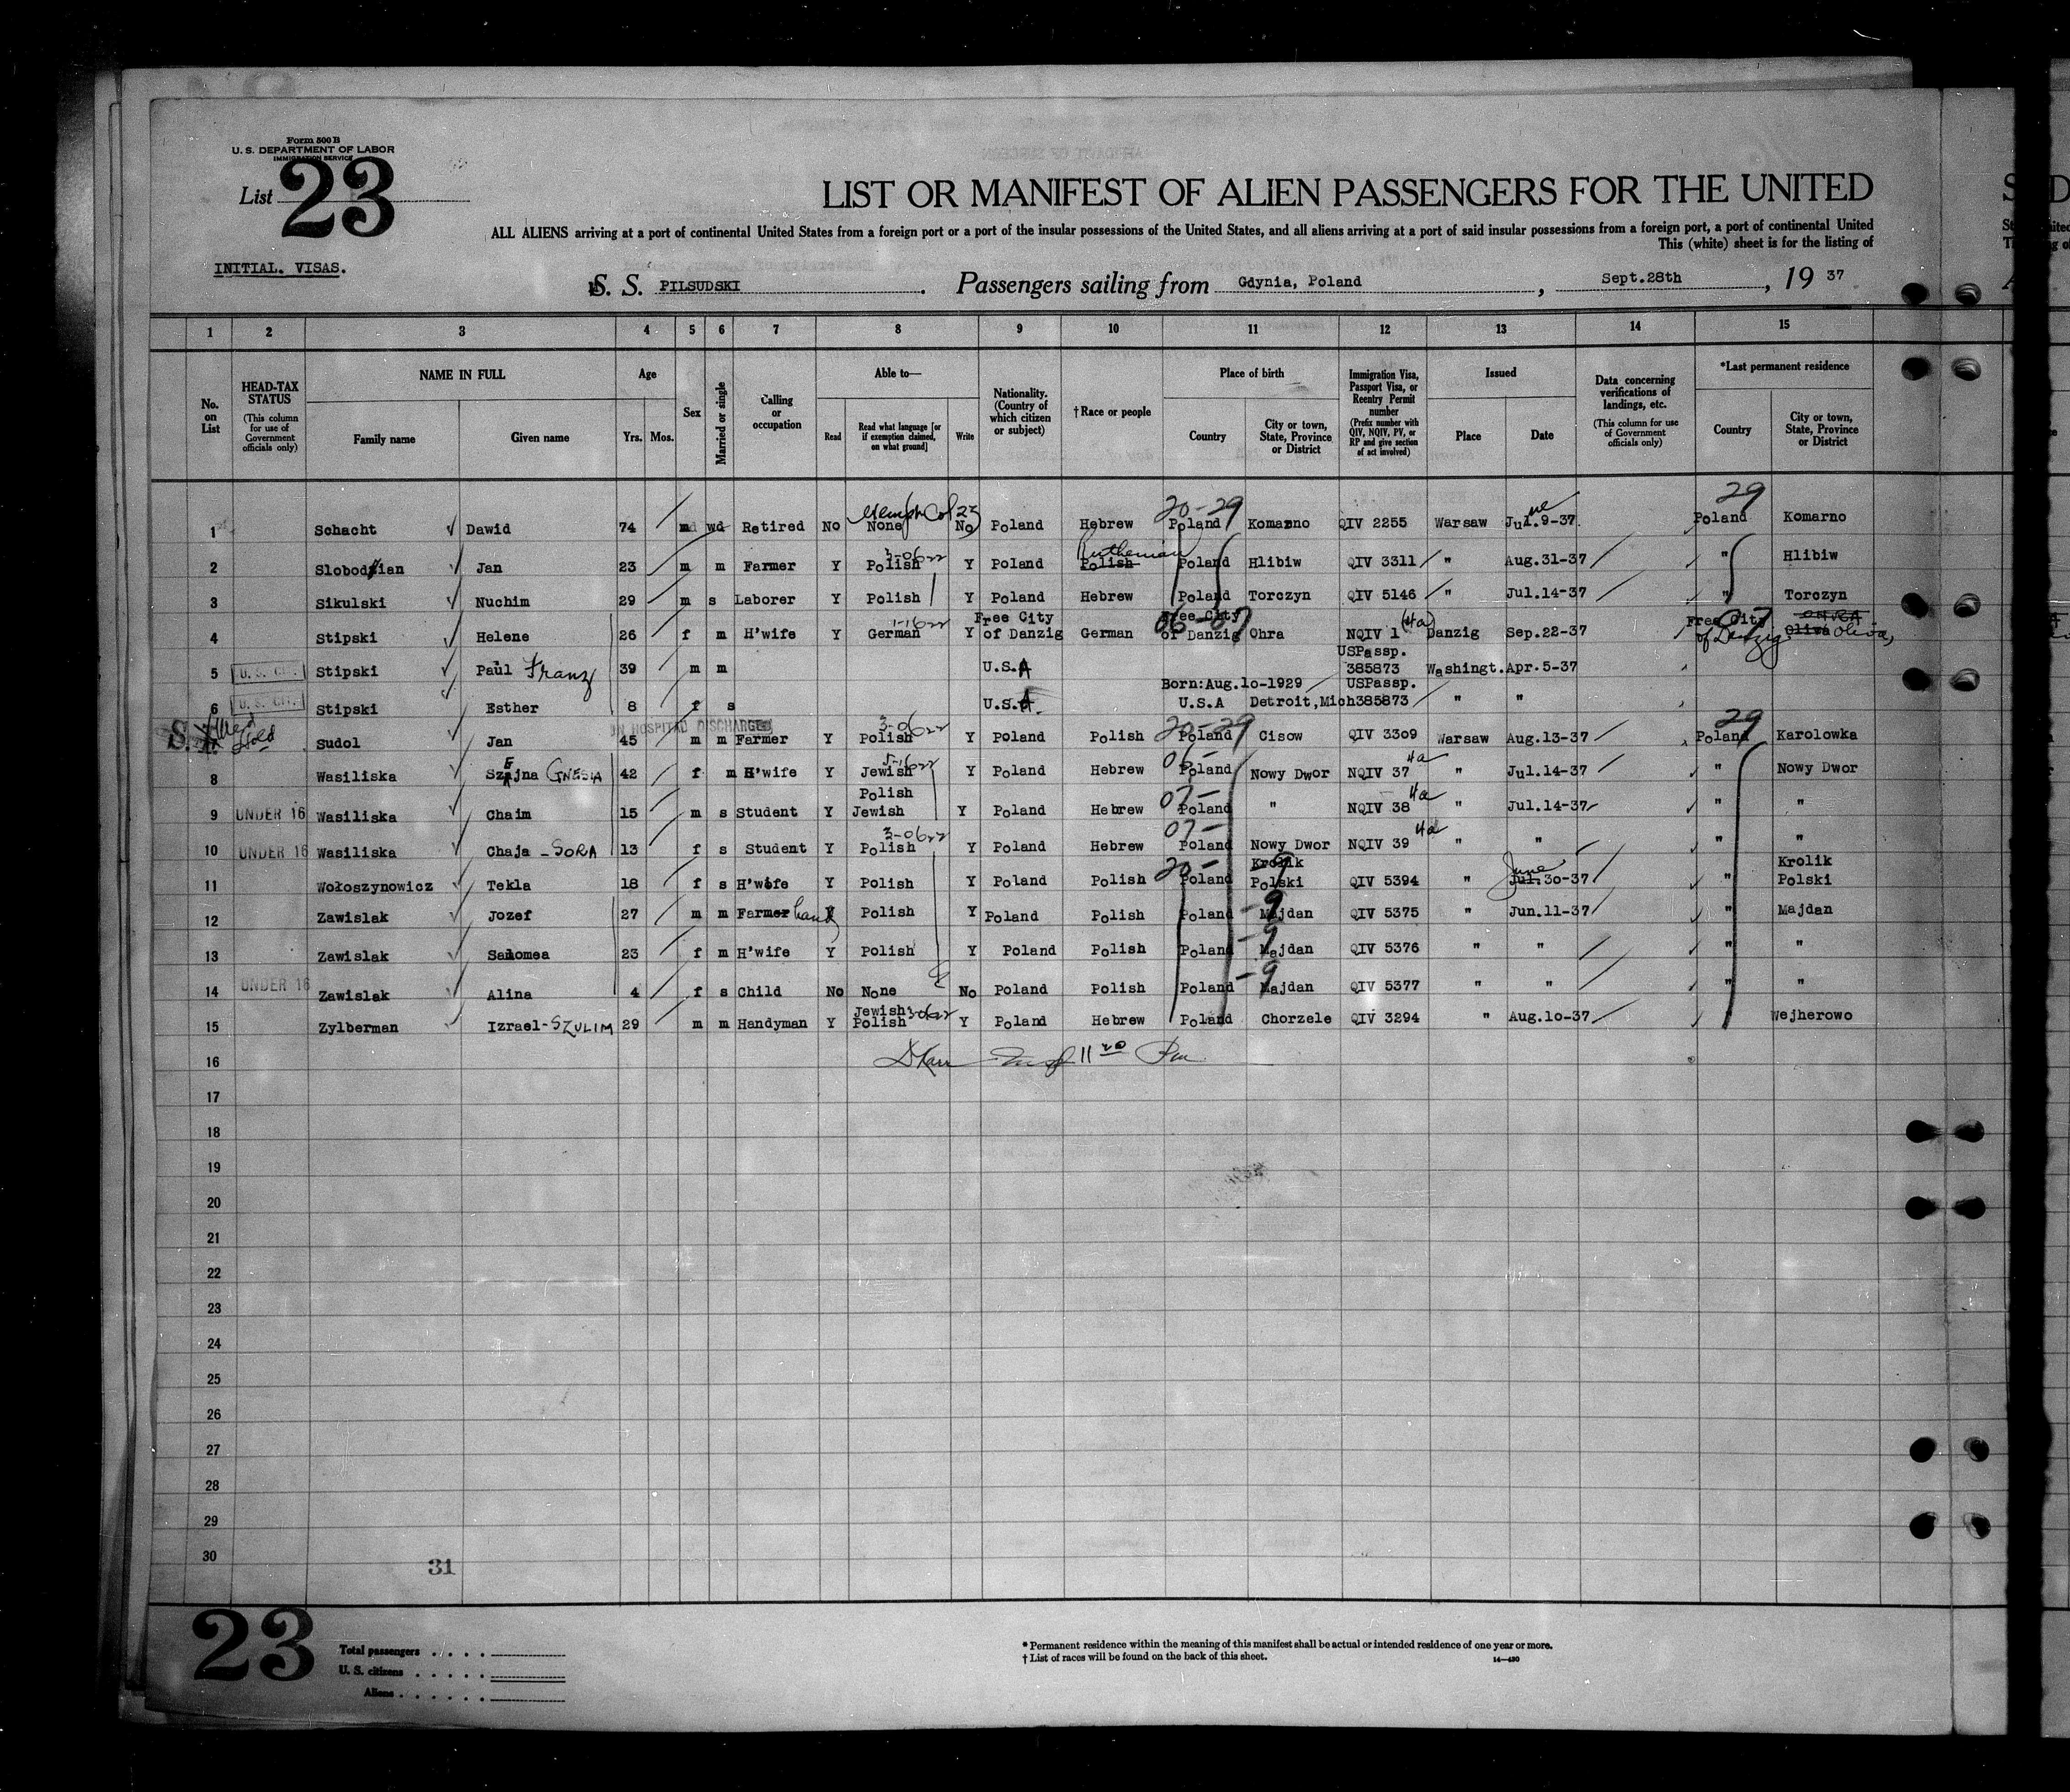 Form 500 B
U. S. DEPARTMENT OF LABOR
IMMIGRATION SERVICE
List 23
LIST OR MANIFEST OF ALIEN PASSENGERS FOR THE UNITED
ALL ALIENS arriving at a port of continental United States from a foreign port or a port of the insular possessions of the United States, and all aliens arriving at a port of said insular possessions from a foreign port, a port of continental United
This (white) sheet is for the listing of
INITIAL. VISAS.
S. S. PILSUDSKI. Passengers sailing from Gdynia, Poland, Sept.28th, 19 37
1 2 3 4 5 6 7 8 9 10 11 12 13 14 15
No. on List
HEAD-TAX STATUS (This column for use of Government officials only)
NAME IN FULL Family name Given name
Age Yrs. Mos.
Sex
Married or single
Calling or occupation
Able to— Read Read what language [or if exemption claimed, on what ground] Write
Nationality. (Country of which citizen or subject)
†Race or people
Place of birth Country City or town, State, Province or District
Immigration Visa, Passport Visa, or Reentry Permit number (Prefix number with QIV, NQIV, PV, or RP and give section of act involved)
Issued Place Date
Data concerning verifications of landings, etc. (This column for use of Government officials only)
*Last permanent residence Country City or town, State, Province or District
20-29 29
1 Schacht Dawid 74 m wd Retired No None No Poland Hebrew Poland Komarno QIV 2255 Warsaw Jul.9-37 Poland Komarno
3-06 Ruthenian
2 Slobodzian Jan 23 m m Farmer Y Polish Y Poland Polish Poland Hlibiw QIV 3311 " Aug.31-37 " Hlibiw
3 Sikulski Nuchim 29 m s Laborer Y Polish Y Poland Hebrew Poland Torczyn QIV 5146 " Jul.14-37 " Torczyn
4 Stipski Helene 26 f m H'wife Y German Y Free City of Danzig German Free City of Danzig Ohra NQIV 1 (4a) Danzig Sep.22-37 Free City of Danzig Oliva Oliva,
5 U. S. CIT. Stipski Paul Franz 39 m m U.S.A USPassp. 385873 Washingt. Apr.5-37
6 U. S. CIT. Stipski Esther 8 f s U.S.A. Born:Aug.10-1929 U.S.A Detroit,Mich USPassp. 385873 " "
IN HOSPITAL DISCHARGED 3-06 20-29 29
Sudol Jan 45 m m Farmer Y Polish Y Poland Polish Poland Cisow QIV 3309 Warsaw Aug.13-37 Poland Karolowka
8 Wasiliska Szejna GNESIA 42 f m H'wife Y Jewish Y Poland Hebrew 06- Poland Nowy Dwor NQIV 37 4a " Jul.14-37 " Nowy Dwor
9 UNDER 16 Wasiliska Chaim 15 m s Student Y Polish Jewish Y Poland Hebrew 07- Poland " NQIV 38 4a " Jul.14-37 " "
10 UNDER 16 Wasiliska Chaja - SORA 13 f s Student Y Polish Y Poland Hebrew 07- Poland Nowy Dwor NQIV 39 4a " " " "
11 Wołoszynowicz Tekla 18 f s H'wife Y Polish Y Poland Polish 20- Poland Krolik Polski QIV 5394 " June Jul.30-37 " Krolik Polski
12 Zawislak Jozef 27 m m Farmer hand Y Polish Y Poland Polish Poland -9 Majdan QIV 5375 " Jun.11-37 " Majdan
13 Zawislak Salomea 23 f m H'wife Y Polish Y Poland Polish Poland -9 Majdan QIV 5376 " " " "
14 UNDER 16 Zawislak Alina 4 f s Child No None No Poland Polish Poland -9 Majdan QIV 5377 " " " "
15 Zylberman Izrael-SZULIM 29 m m Handyman Y Jewish Polish Y Poland Hebrew Poland Chorzele QIV 3294 " Aug.10-37 Wejherowo
16
17
18
19
20
21
22
23
24
25
26
27
28
29
30
31
23
Total passengers . . . .
U. S. citizens . . . . .
Aliens . . . . . .
* Permanent residence within the meaning of this manifest shall be actual or intended residence of one year or more.
† List of races will be found on the back of this sheet.
14—430